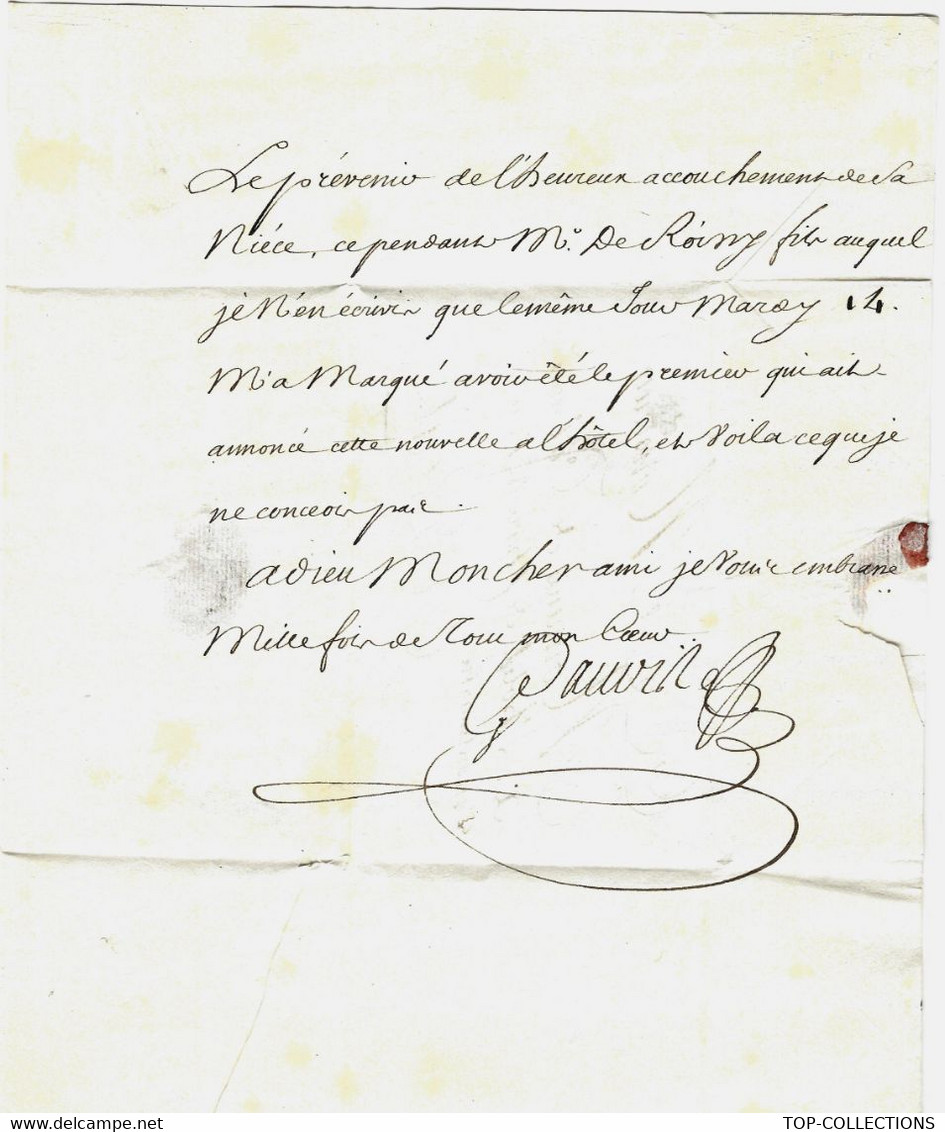 Le prévenir de l'heureux accouchement de Sa
Niéce, cependant Mr. De Roissy fils auquel
je N'en écrivis que le même Jour Mardy 14.
M'a Marqué avoir été le premier qui ait
annoncé cette nouvelle a l'hôtel, et Voila ce que je
ne concois pas.
adieu Mon cher ami je Vous embrasse
Mille fois de Tout mon Cœur.
TOP-COLLECTIONS